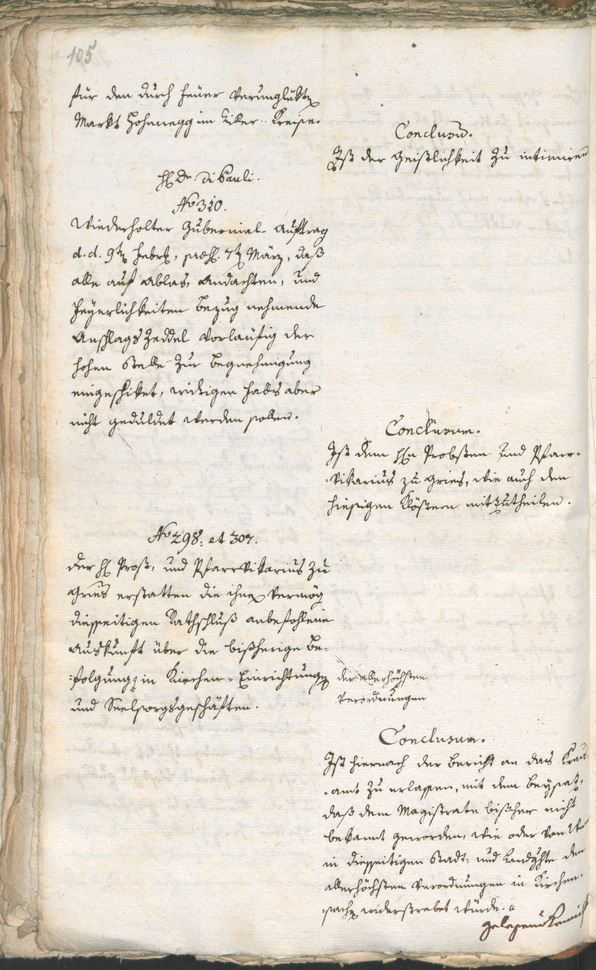 105
für den durch Feuer verunglükten
Markt Hohenegg im Ziller-Kreise.
Conclusum.
Ist der Geistlichkeit zu intimiren
H. Dr. Di Pauli.
No 310.
Wiederholter Gubernial-Auftrag
d. d. 9ten Febr., praes. 7ten März, daß
alle auf Ablas, Andachten, und
Feyerlichkeiten bezug nehmende
Anschlagszeddel vorläufig der
hohen Stelle zur Begnehmigung
eingeschiket, widrigen falls aber
nicht geduldet werden sollen.
Conclusum.
Ist dem Hn Probsten und Pfarr-
Vikarius zu Gries, wie auch den
hiesigen Klöstern mitzutheilen.
No 298: et 307.
Der H. Probst, und Pfarrvikarius zu
Gries erstatten die ihnen vermög
diesseitigen Rathschluß anbefohlene
Auskunft über die bisherige Be-
folgung in Kirchen-Einrichtungen
und Seelsorgsgeschäften.
der allerhöchsten
Verordnungen
Conclusum.
Ist hiernach der Bericht an das Kreis-
amt zu erlassen, mit dem Beysatz,
daß dem Magistrate bisher nicht
bekannt geworden, wie oder von
in diesseitigen Stadt- und Landgchte den
allerhöchsten Verordnungen in Kirchen-
sachen widerstrebet würde.